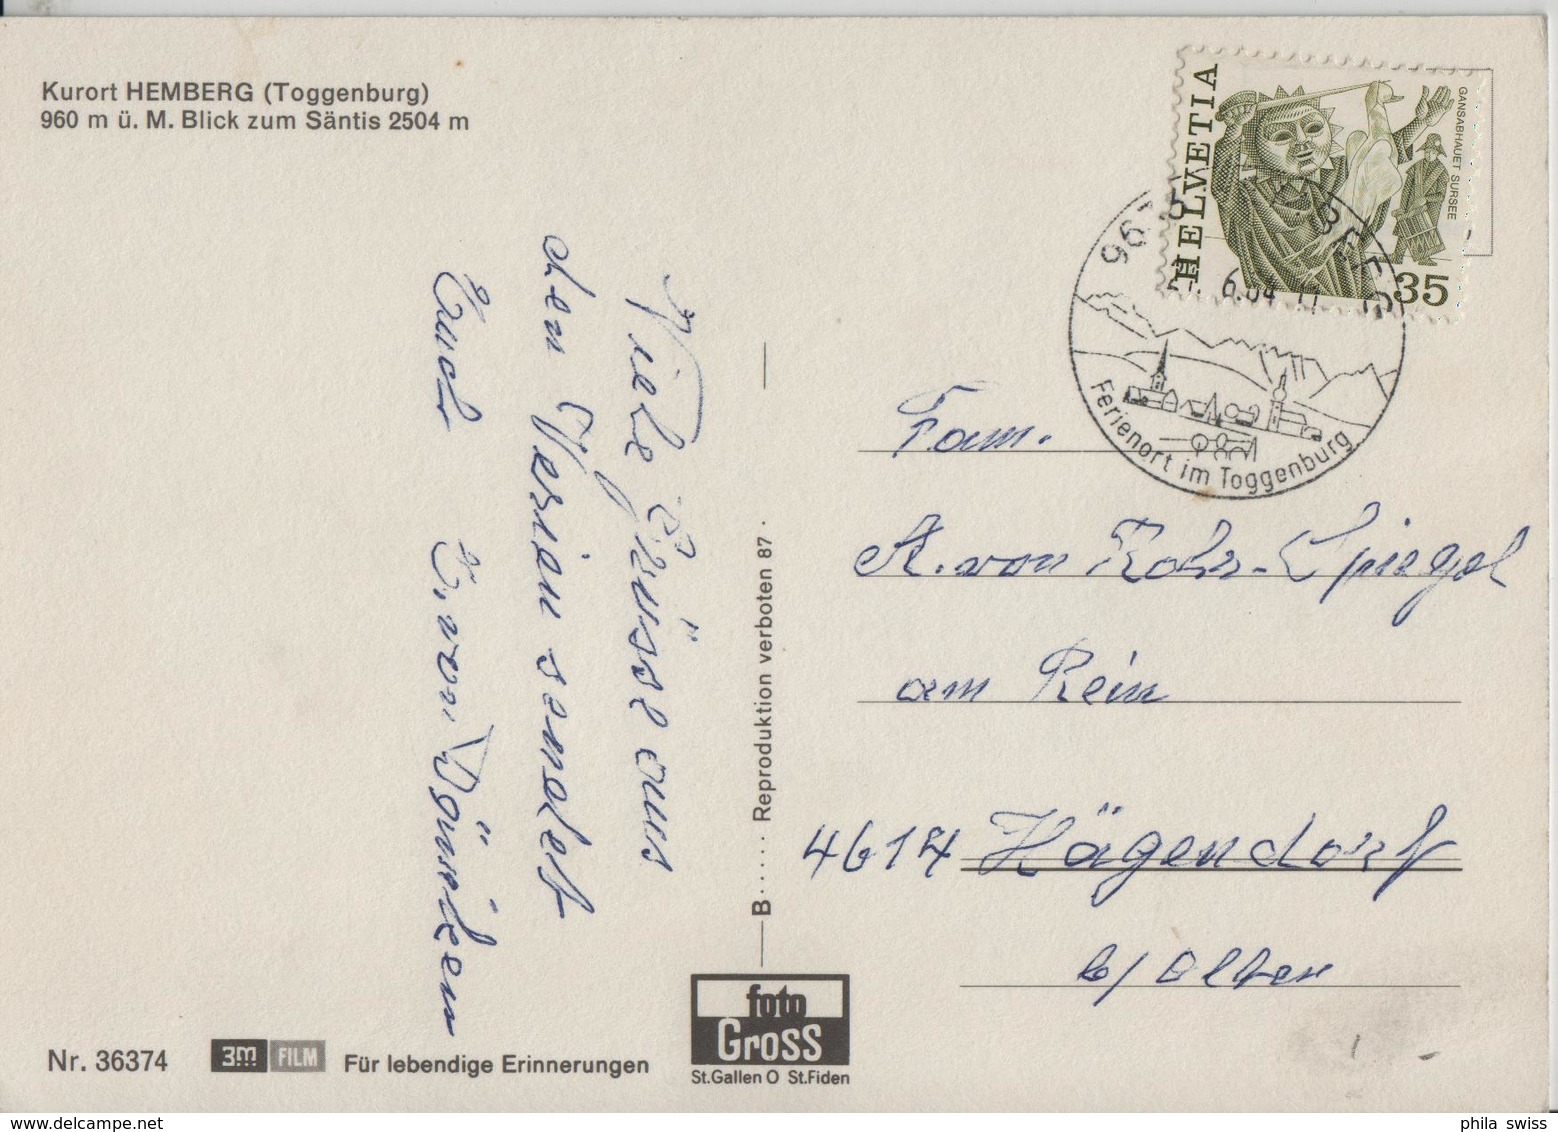 Kurort HEMBERG (Toggenburg)
960 m ü. M. Blick zum Säntis 2504 m
Viele Grüsse aus
den Ferien sendet
Euch E. von Däniken
B..... Reproduktion verboten 87.
HELVETIA
GANSABHAUET SURSEE
35
6.84
Ferienort im Toggenburg
Fam.
A. von Rohr-Spiegel
am Rein
4614 Hägendorf
b/Olten
Nr. 36374
3M FILM Für lebendige Erinnerungen
foto
Gross
St.Gallen O St.Fiden
phila swiss